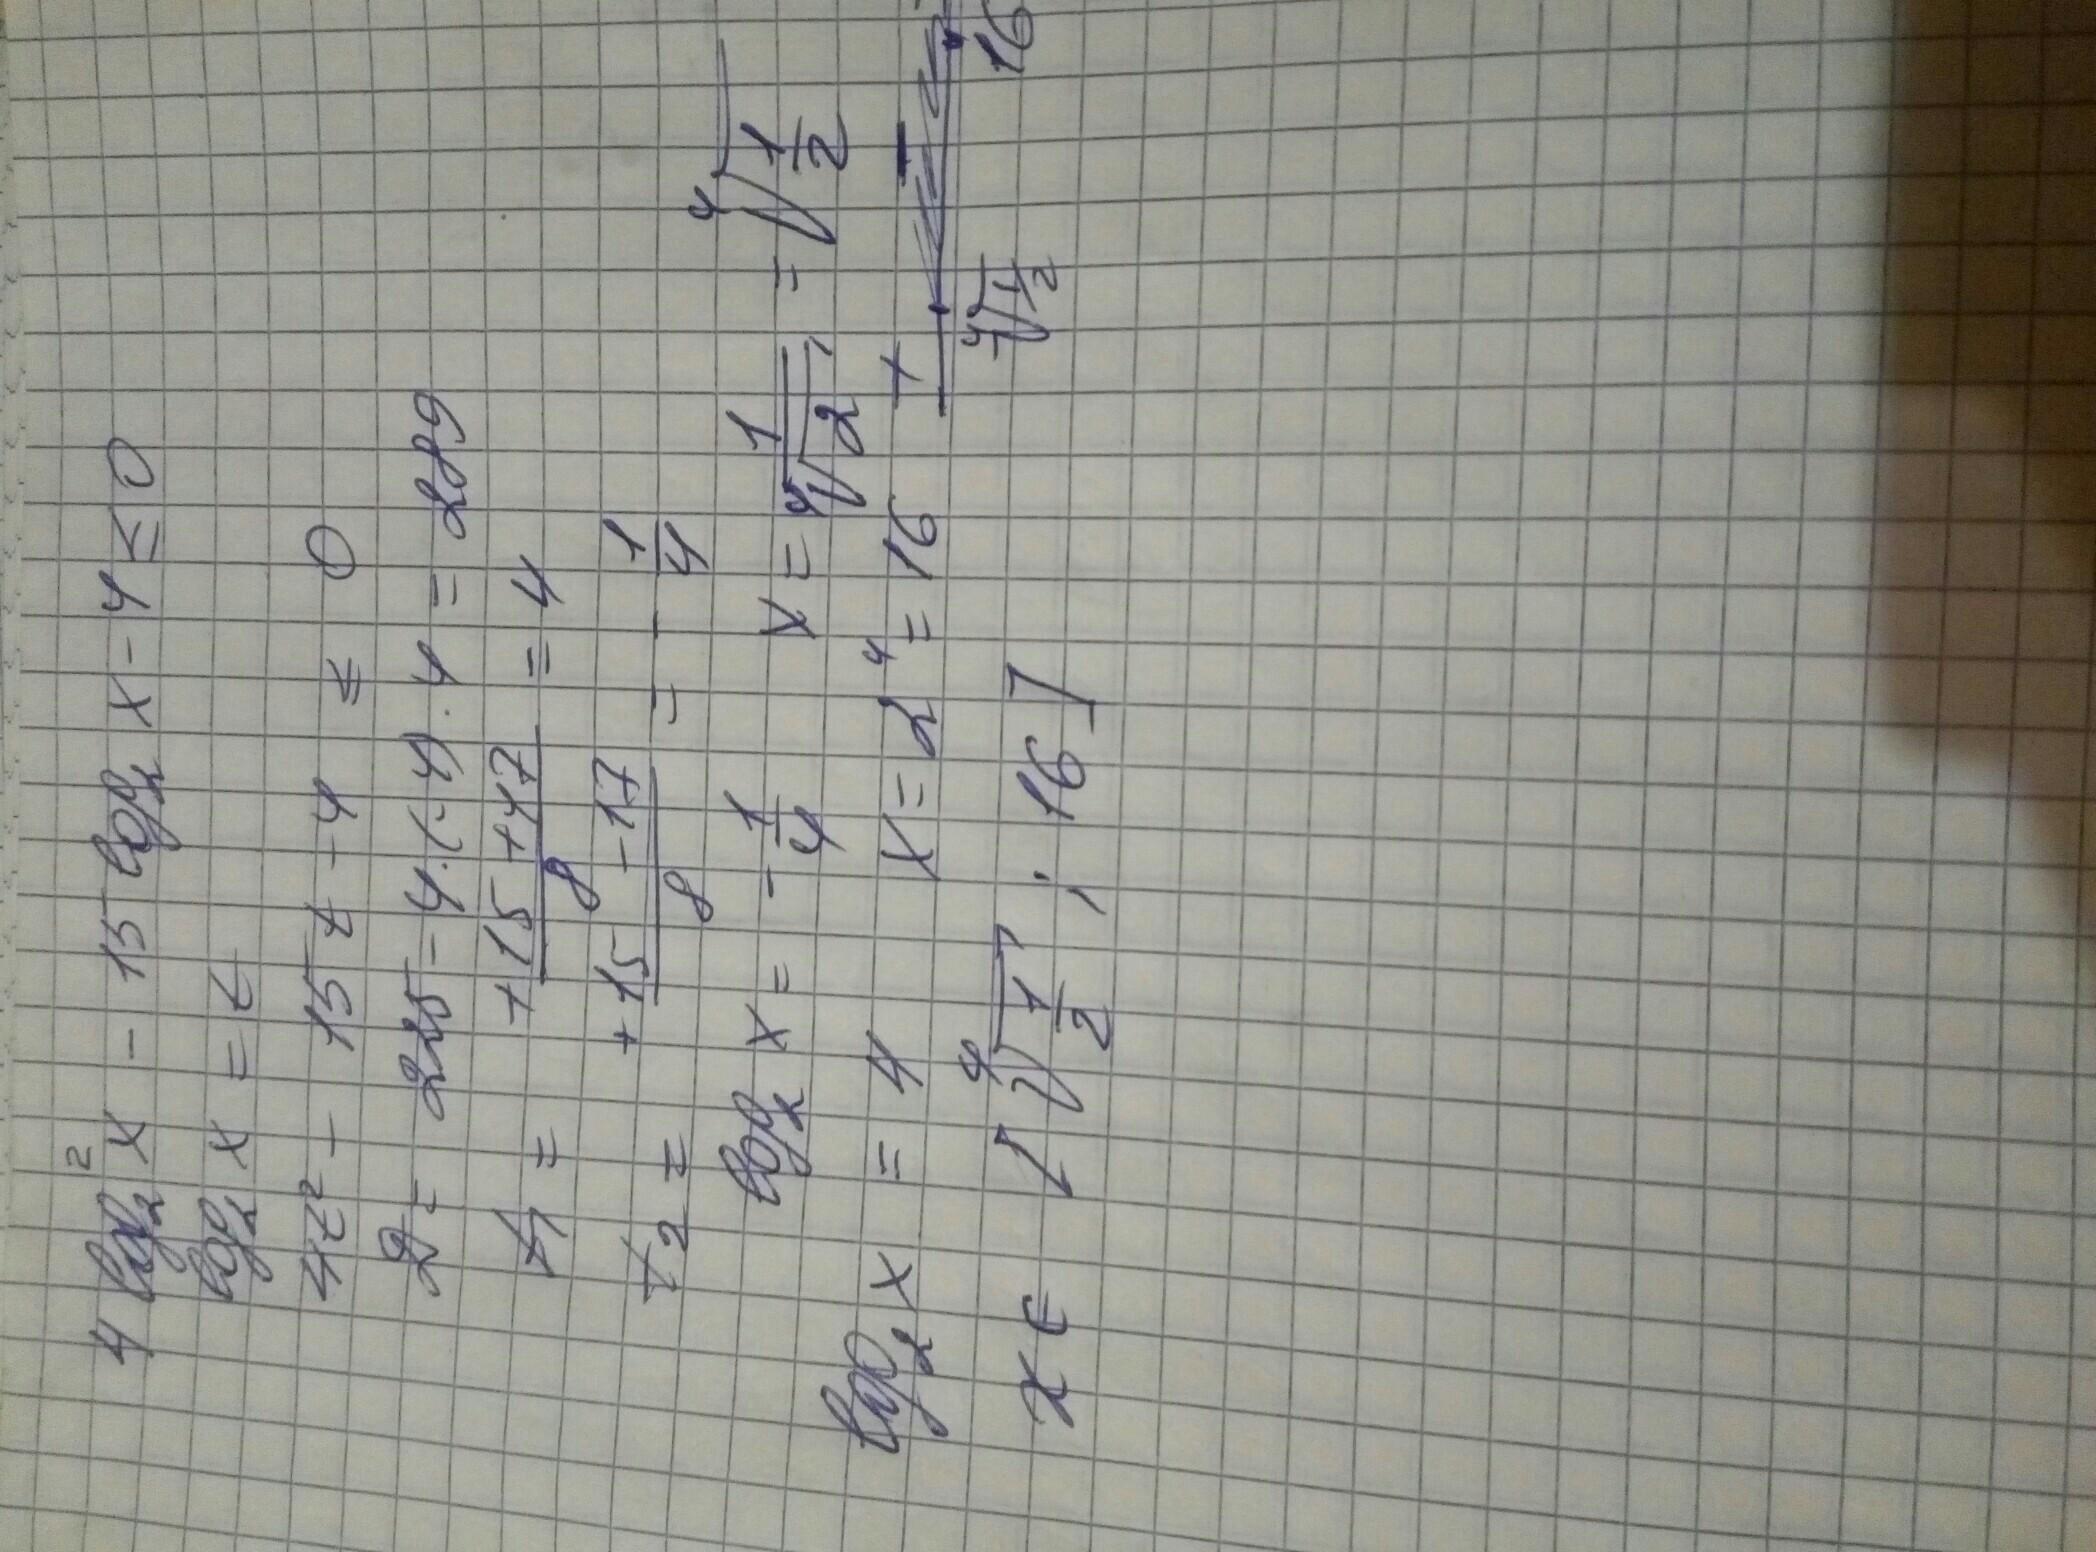 4 log₂² x - 15 log₂ x - 4 ≤ 0
log₂ x = t
4t² - 15t - 4 ≤ 0
D = 225 - 4·(-4)·4 = 289
t₁ = +15 +17 / 8 = 4
t₂ = +15 - 17 / 8 = - 1/4
log₂ x = - 1/4 x = 1/⁴√2 = ⁴√(1/2)
log₂ x = 4 x = 2⁴ = 16 + -
⁴√(1/2) 16
x ∈ [ ⁴√(1/2) ; 16 ]